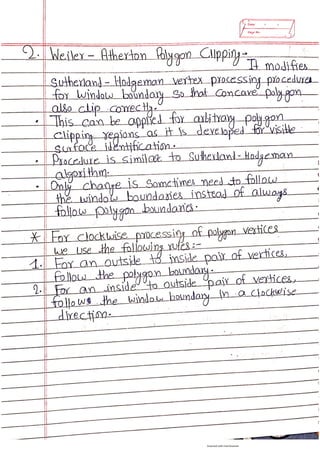 2. Weiler - Atherton Polygon Clipping -
It modifies
Sutherland - Hodgeman vertex processing procedures
for window boundary so that concave polygon
also clip correctly.
• This can be applied for arbitrary polygon
clipping regions as it is developed for visible
surface identification.
• Procedure is similar to Sutherland-Hodgeman
algorithm.
• Only change is sometimes need to follow
the window boundaries instead of always
follow polygon boundaries.
* For clockwise processing of polygon vertices
we use the following rules :-
1. For an outside to inside pair of vertices,
follow the polygon boundary.
2. For an inside to outside pair of vertices,
follows the window boundary in a clockwise
direction.